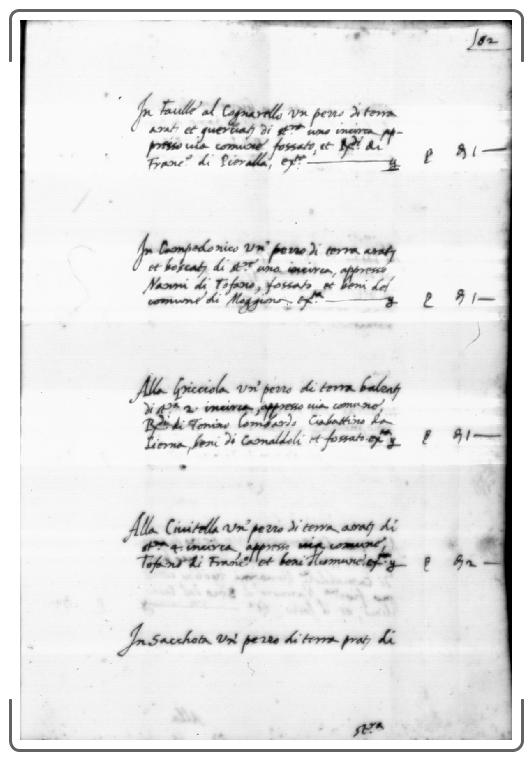 182
In Faulle al Cognarello un pezzo di terra
arat: et querciat: di st.ra uno incirca, ap-
presso via comune, fossato, et B.di di
Franc.o di Pieralla, ex.a
In Campedonico un' pezzo di terra arat:
et boscat: di st.ra uno incirca, appresso
Nanni di Tofano, fossato, et beni del
comune di Moggiona, ex.a
Alla Gricciola un' pezzo di terra balzat:
di st.ra 2. incirca, appresso via comune,
B.di di Tonino Lombardo Ciabattino da
Lierna, beni di Camaldoli et fossato ex.a
Alla Civitella un' pezzo di terra arat: di
st.ra 4. incirca appresso via comune,
Tofano di Franc.o et beni
In Sacchota un' pezzo di terra prat: di
st.ra